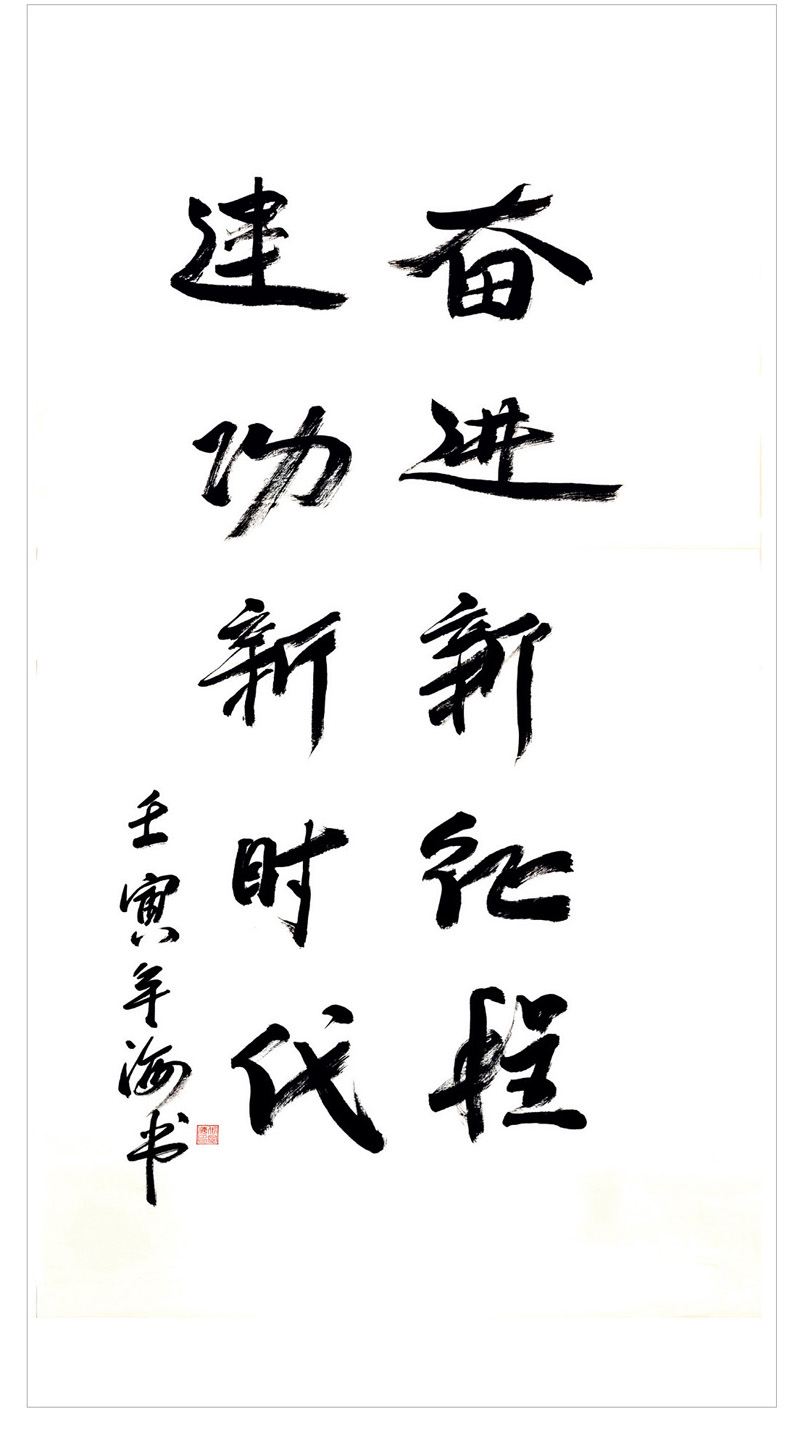 奋进新征程
建功新时代
壬寅年海书